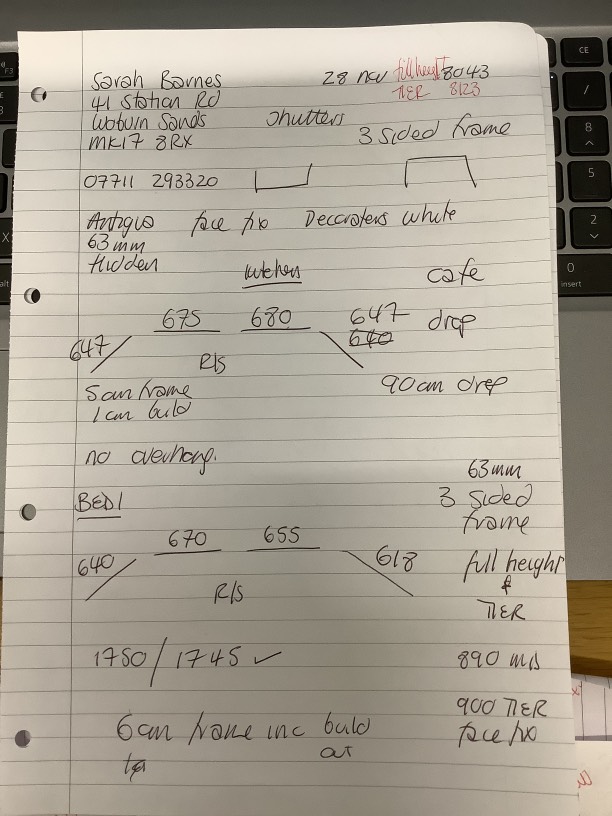 Sarah Barnes 28 nov full height 8043
41 Station Rd TIER 8123
Woburn Sands Shutters
MK17 8RX 3 sided frame
07711 293320
Antigua face fix Decorators white
63mm
Hidden
kitchen cafe
675 680 647 drop
647 640
R/S
5cm frame 90cm drop
1cm build
no overhang.
63mm
BED1 3 sided
frame
670 655
640 618 full height
R/S &
TIER
1750/1745 ✓ 890 m/s
900 TIER
6cm frame inc build face fix
out